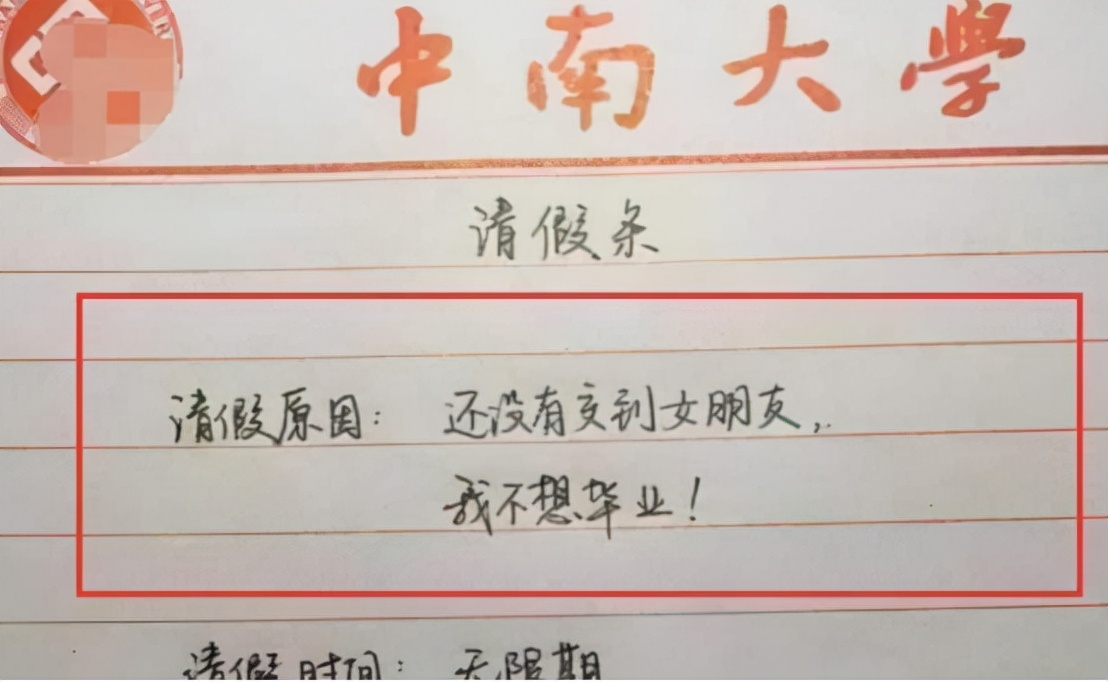 中南大學
请假条
请假原因: 还没有交到女朋友,
我不想毕业!
请假时间: 无限期